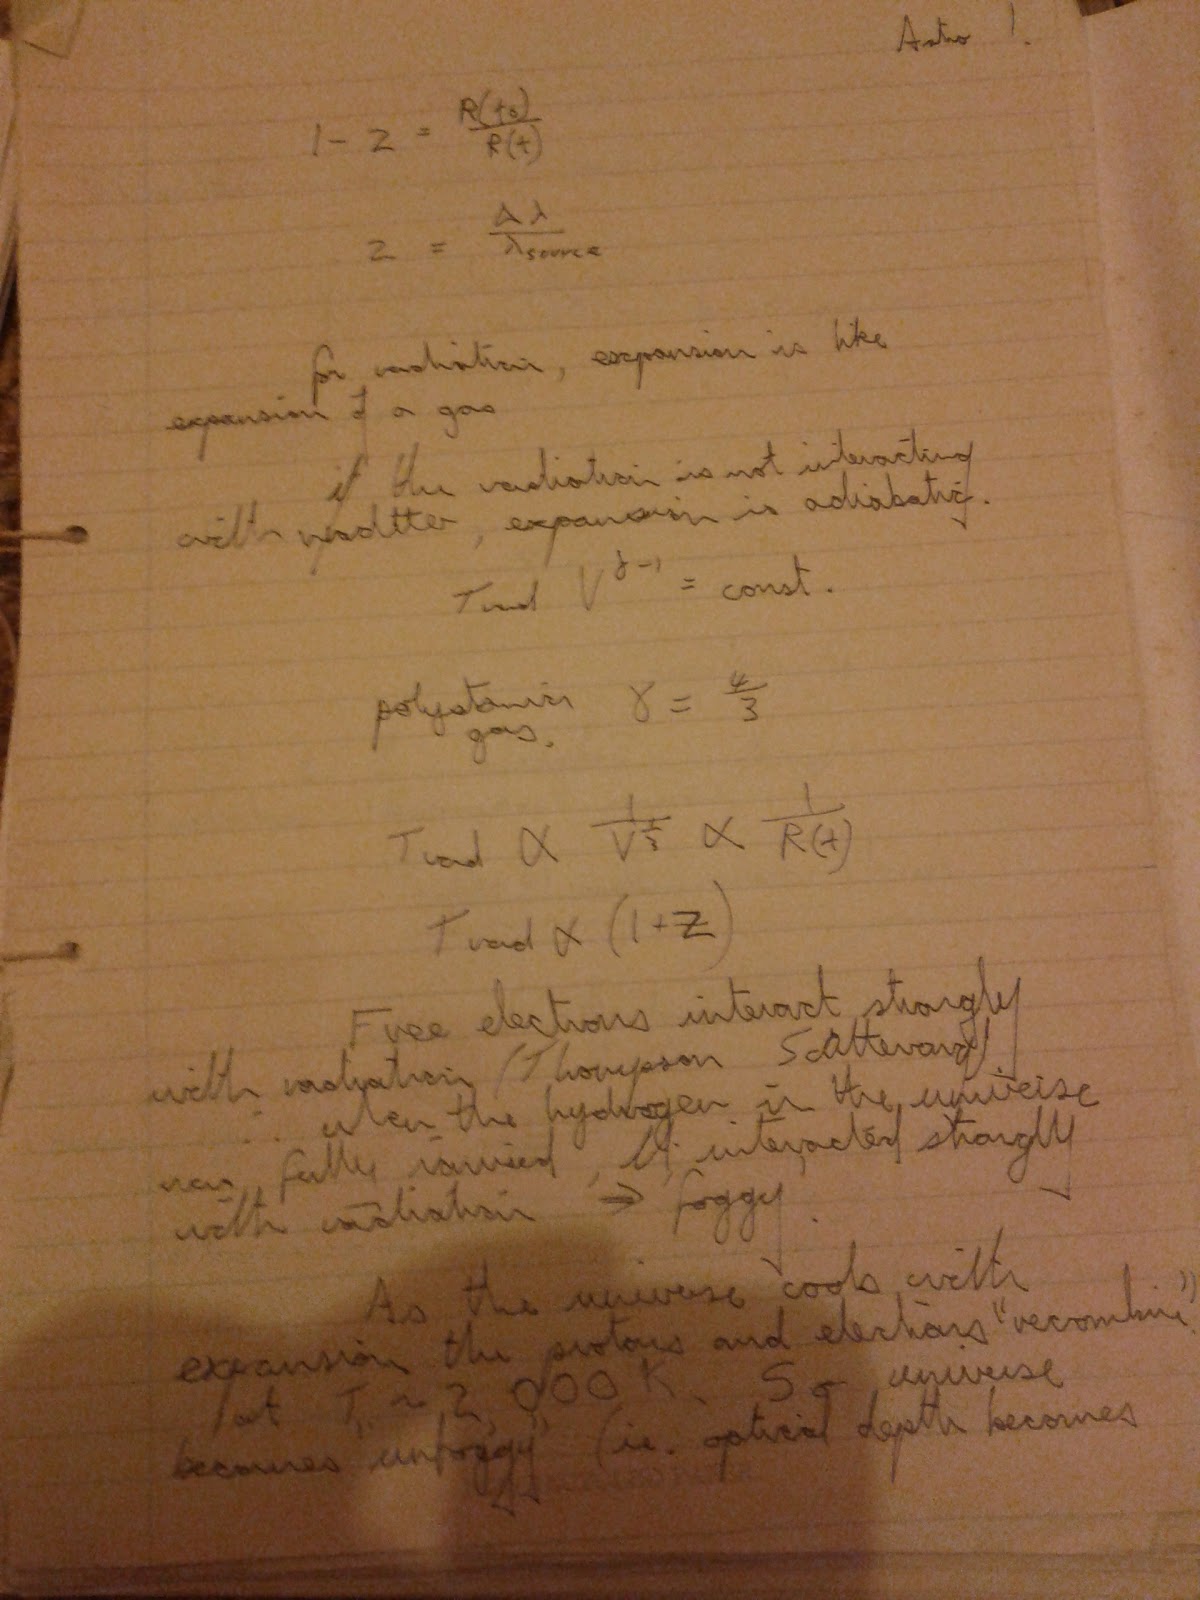 Astro 1.
1 - z = R(t0)/R(t)
z = Δλ/λsource
for radiation, expansion is like
expansion of a gas
if the radiation is not interacting
with madtter, expansion is adiabatic.
Trad V^γ-1 = const.
polyatomic γ = 4/3
gas.
Trad ∝ 1/V^1/3 ∝ 1/R(t)
Trad ∝ (1+z)
Free electrons interact strongly
with radiation (Thompson Scattering)
∴ when the hydrogen in the universe
was fully ionised, it interacted strongly
with radiation → foggy.
As the universe cools with
expansion the protons and electrons "recombine"
at T ~ 2,000 K. So universe
becomes unfoggy (ie. optical depth becomes